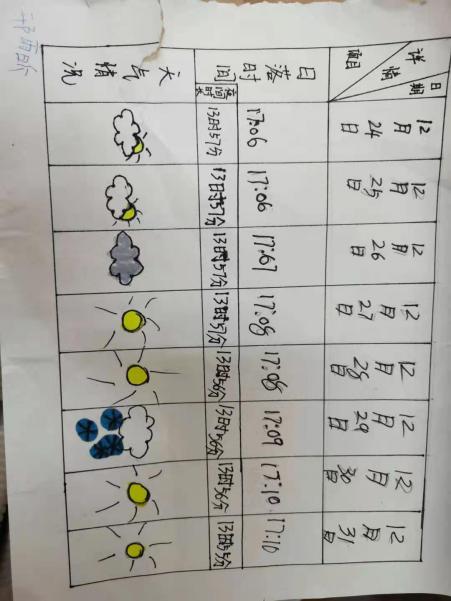 日期
详情
12月24日 12月25日 12月26日 12月27日 12月28日 12月29日 12月30日 12月31日
日落时间 17:06 17:06 17:67 17:08 17:08 17:09 17:10 17:10
夜间时长 13时57分 13时57分 13时57分 13时57分 13时56分 13时56分 13时56分 13时55分
天气情况